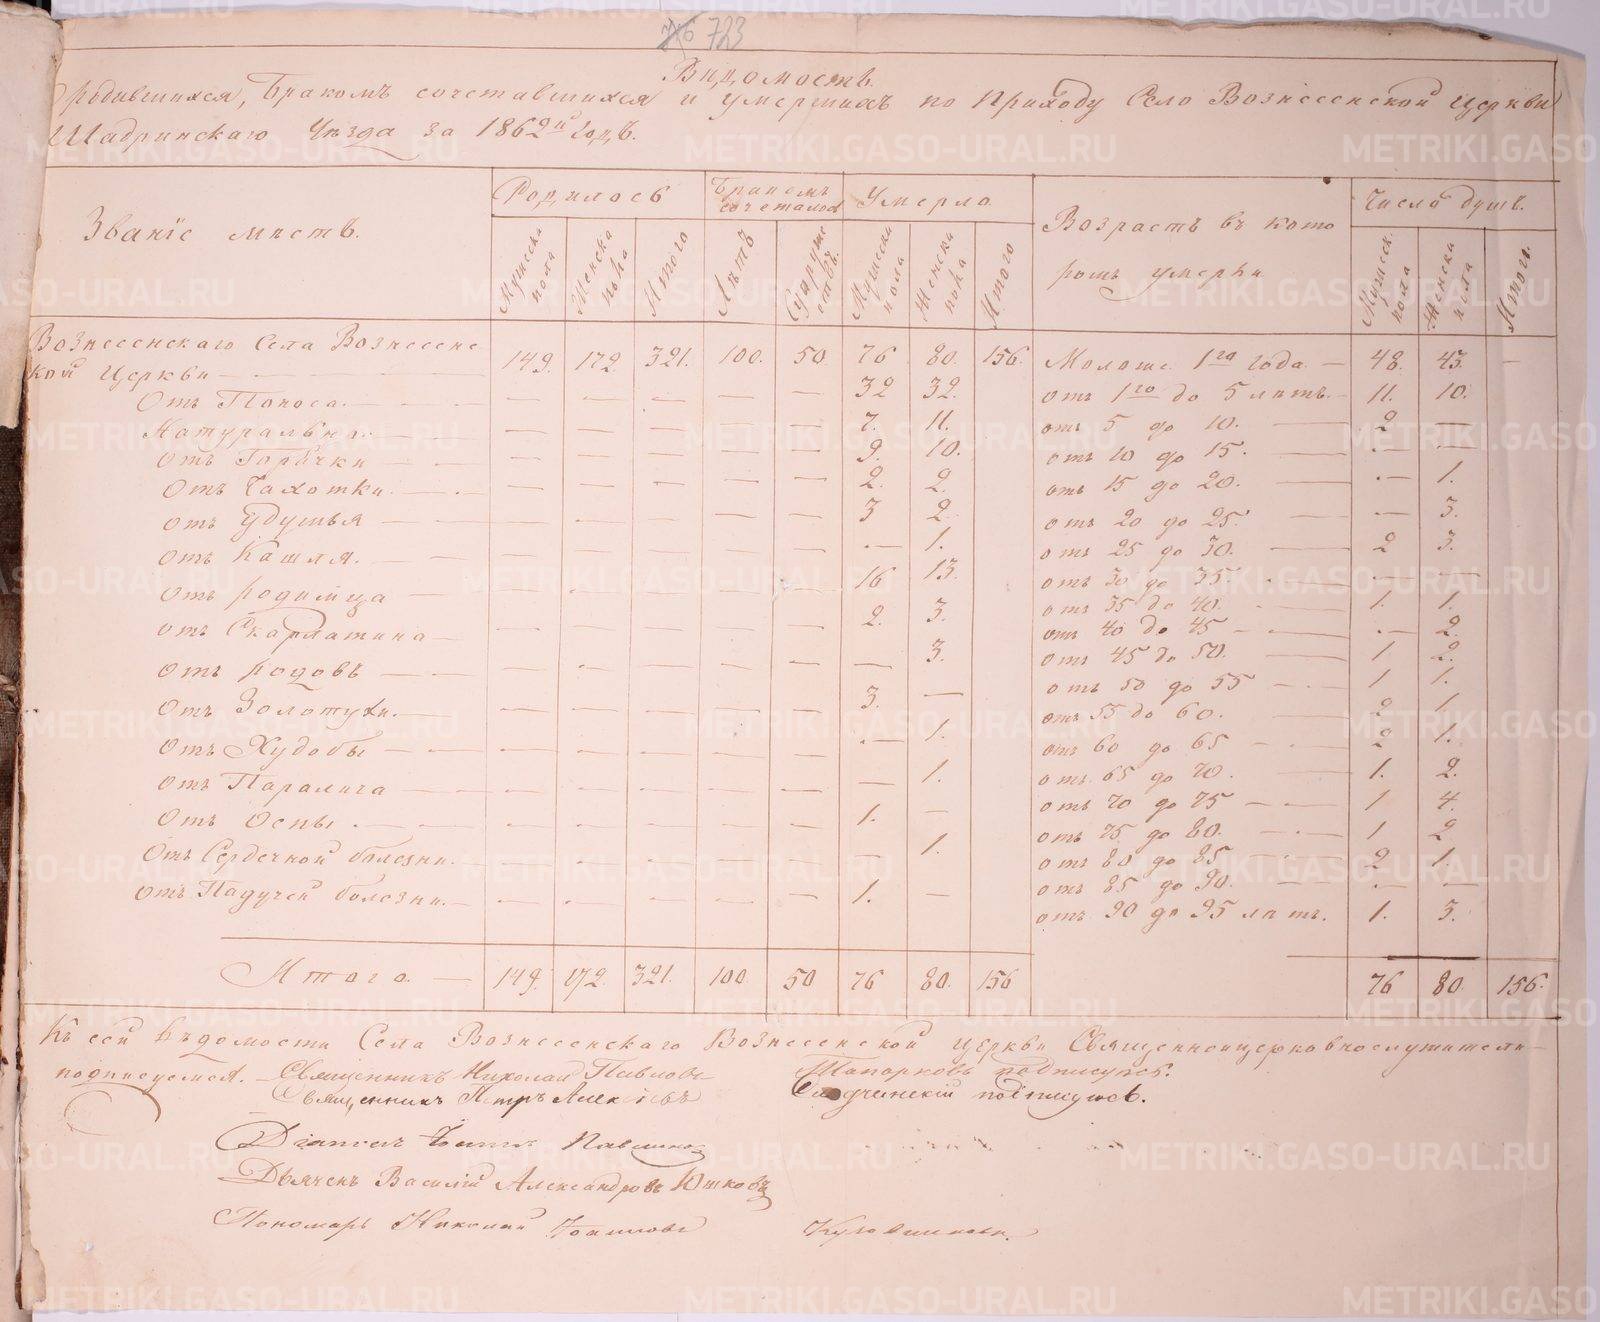 723
Вѣдомость
О родившихся, Бракомъ сочетавшихся и умершихъ по Приходу Село Вознесенской Церкви
Шадринскаго Уѣзда за 1862й годъ.
Званіе мѣстъ. Родилось Бракомъ сочеталось Умерло Возрастъ въ кото Число душъ.
ромъ умерли
Мужеска пола Женска пола Итого Лѣтъ Супруже ствъ Мужеска пола Женска пола Итого Мужеск. пола Женска пола Итого.
Вознесенскаго Села Вознесенс
кой Церкви — 149. 172. 321. 100. 50 76 80. 156. Моложе 1го года — 48. 43. —
Отъ Поноса. — — — — — 32 32. отъ 1го до 5 лѣтъ. — 11. 10.
Натурально. — — — — — 7. 11. отъ 5 до 10. — 2 —
отъ Горячки — — — — — 9. 10. отъ 10 до 15. — — —
Отъ Чахотки. — — — — — 2. 2. отъ 15 до 20. — — 1.
отъ Удушья — — — — — 3 2. отъ 20 до 25. — — 3.
отъ Кашля. — — — — — — 1. отъ 25 до 30. — 2 3.
отъ родимца — — — — — 16 13. отъ 30 до 35. — — —
отъ Скарлатина — — — — — 2. 3. отъ 35 до 40. — 1. 1.
отъ 40 до 45 — — 2.
отъ родовъ — — — — — — 3. отъ 45 до 50. — 1 2.
отъ Золотухи. — — — — — 3. — отъ 50 до 55 — 1 1.
отъ 55 до 60. — 2 1.
отъ Худобы — — — — — — 1. отъ 60 до 65 — 2 1.
отъ Паралича — — — — — — 1. отъ 65 до 70. — 1. 2.
отъ 70 до 75 — 1 4.
отъ Оспы. — — — — — 1. — отъ 75 до 80. — 1 2
Отъ Сердечной болезни. — — — — — 1. отъ 80 до 85 — 2 1.
отъ 85 до 90. — — —
отъ Падучей болезни. — — — — — 1. — отъ 90 до 95 лѣтъ. 1. 3.
Итого. — 149. 172. 321. 100 50 76 80. 156 76 80 156.
Къ сей вѣдомости Села Вознесенскаго Вознесенской Церкви Священноицерковнослужители —
подписуемся. — Священникъ Николай Павловъ Топорковъ подписуюсь.
Священникъ Петръ Алексіевъ подписуюсь.
Діаконъ
Дьячекъ Василій Александровъ Юшковъ
Пономарь Николай
METRIKI.GASO-URAL.RU